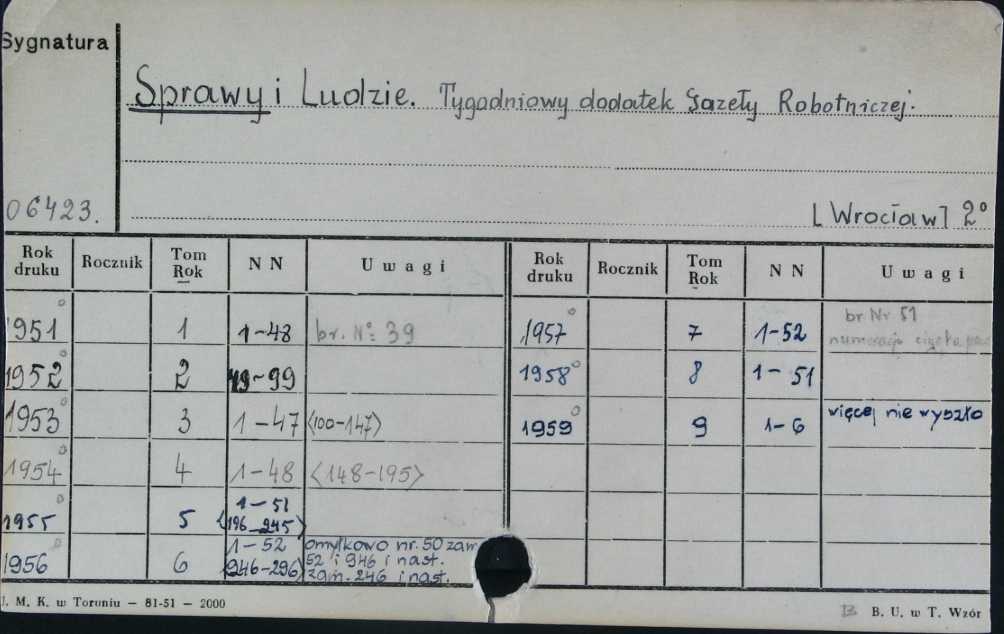 Sygnatura
Sprawy i Ludzie. Tygodniowy dodatek Gazety Robotniczej.
06423.
[Wrocław] 2°
Rok druku Rocznik Tom Rok NN Uwagi Rok druku Rocznik Tom Rok NN Uwagi
1951° 1 1-48 br. No: 39 1957° 7 1-52 br Nr 51 numeracja
1952° 2 49-99 1958° 8 1-51
1953° 3 1-47 <100-147> 1959° 9 1-6 więcej nie wyszło
1954° 4 1-48 <148-195>
1955° 5 1-51 <196-245>
1956° 6 1-52 <946-296> omyłkowo nr. 50 zam 52 i 946 i nast. zam. 246 i nast.
J. M. K. w Toruniu — 81-51 — 2000
B. U. w T. Wzór